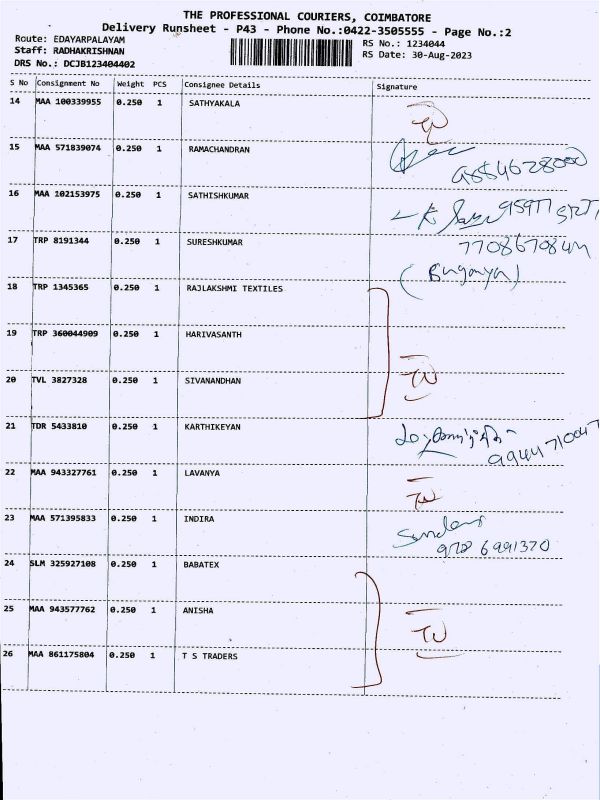 THE PROFESSIONAL COURIERS, COIMBATORE
Delivery Runsheet - P43 - Phone No.:0422-3505555 - Page No.:2
Route: EDAYARPALAYAM
RS No.: 1234044
Staff: RADHAKRISHNAN
RS Date: 30-Aug-2023
DRS No.: DCJB123404402
S No Consignment No Weight PCS Consignee Details Signature
14 MAA 100339955 0.250 1 SATHYAKALA
15 MAA 571839074 0.250 1 RAMACHANDRAN
16 MAA 102153975 0.250 1 SATHISHKUMAR
17 TRP 8191344 0.250 1 SURESHKUMAR
18 TRP 1345365 0.250 1 RAJLAKSHMI TEXTILES
19 TRP 360044909 0.250 1 HARIVASANTH
20 TVL 3827328 0.250 1 SIVANANDHAN
21 TDR 5433810 0.250 1 KARTHIKEYAN
22 MAA 943327761 0.250 1 LAVANYA
23 MAA 571395833 0.250 1 INDIRA
24 SLM 325927108 0.250 1 BABATEX
25 MAA 943577762 0.250 1 ANISHA
26 MAA 861175804 0.250 1 T S TRADERS